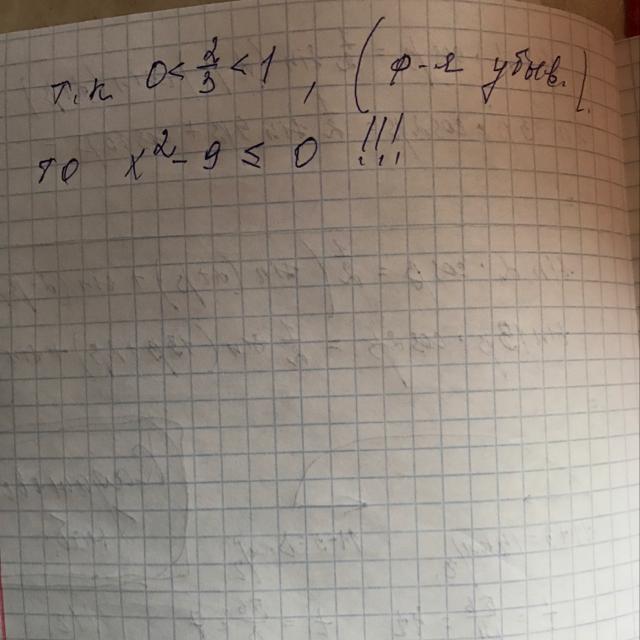 т.к. 0 < 2/3 < 1, (ф-я убыв.)
то x² - 9 ≤ 0 !!!